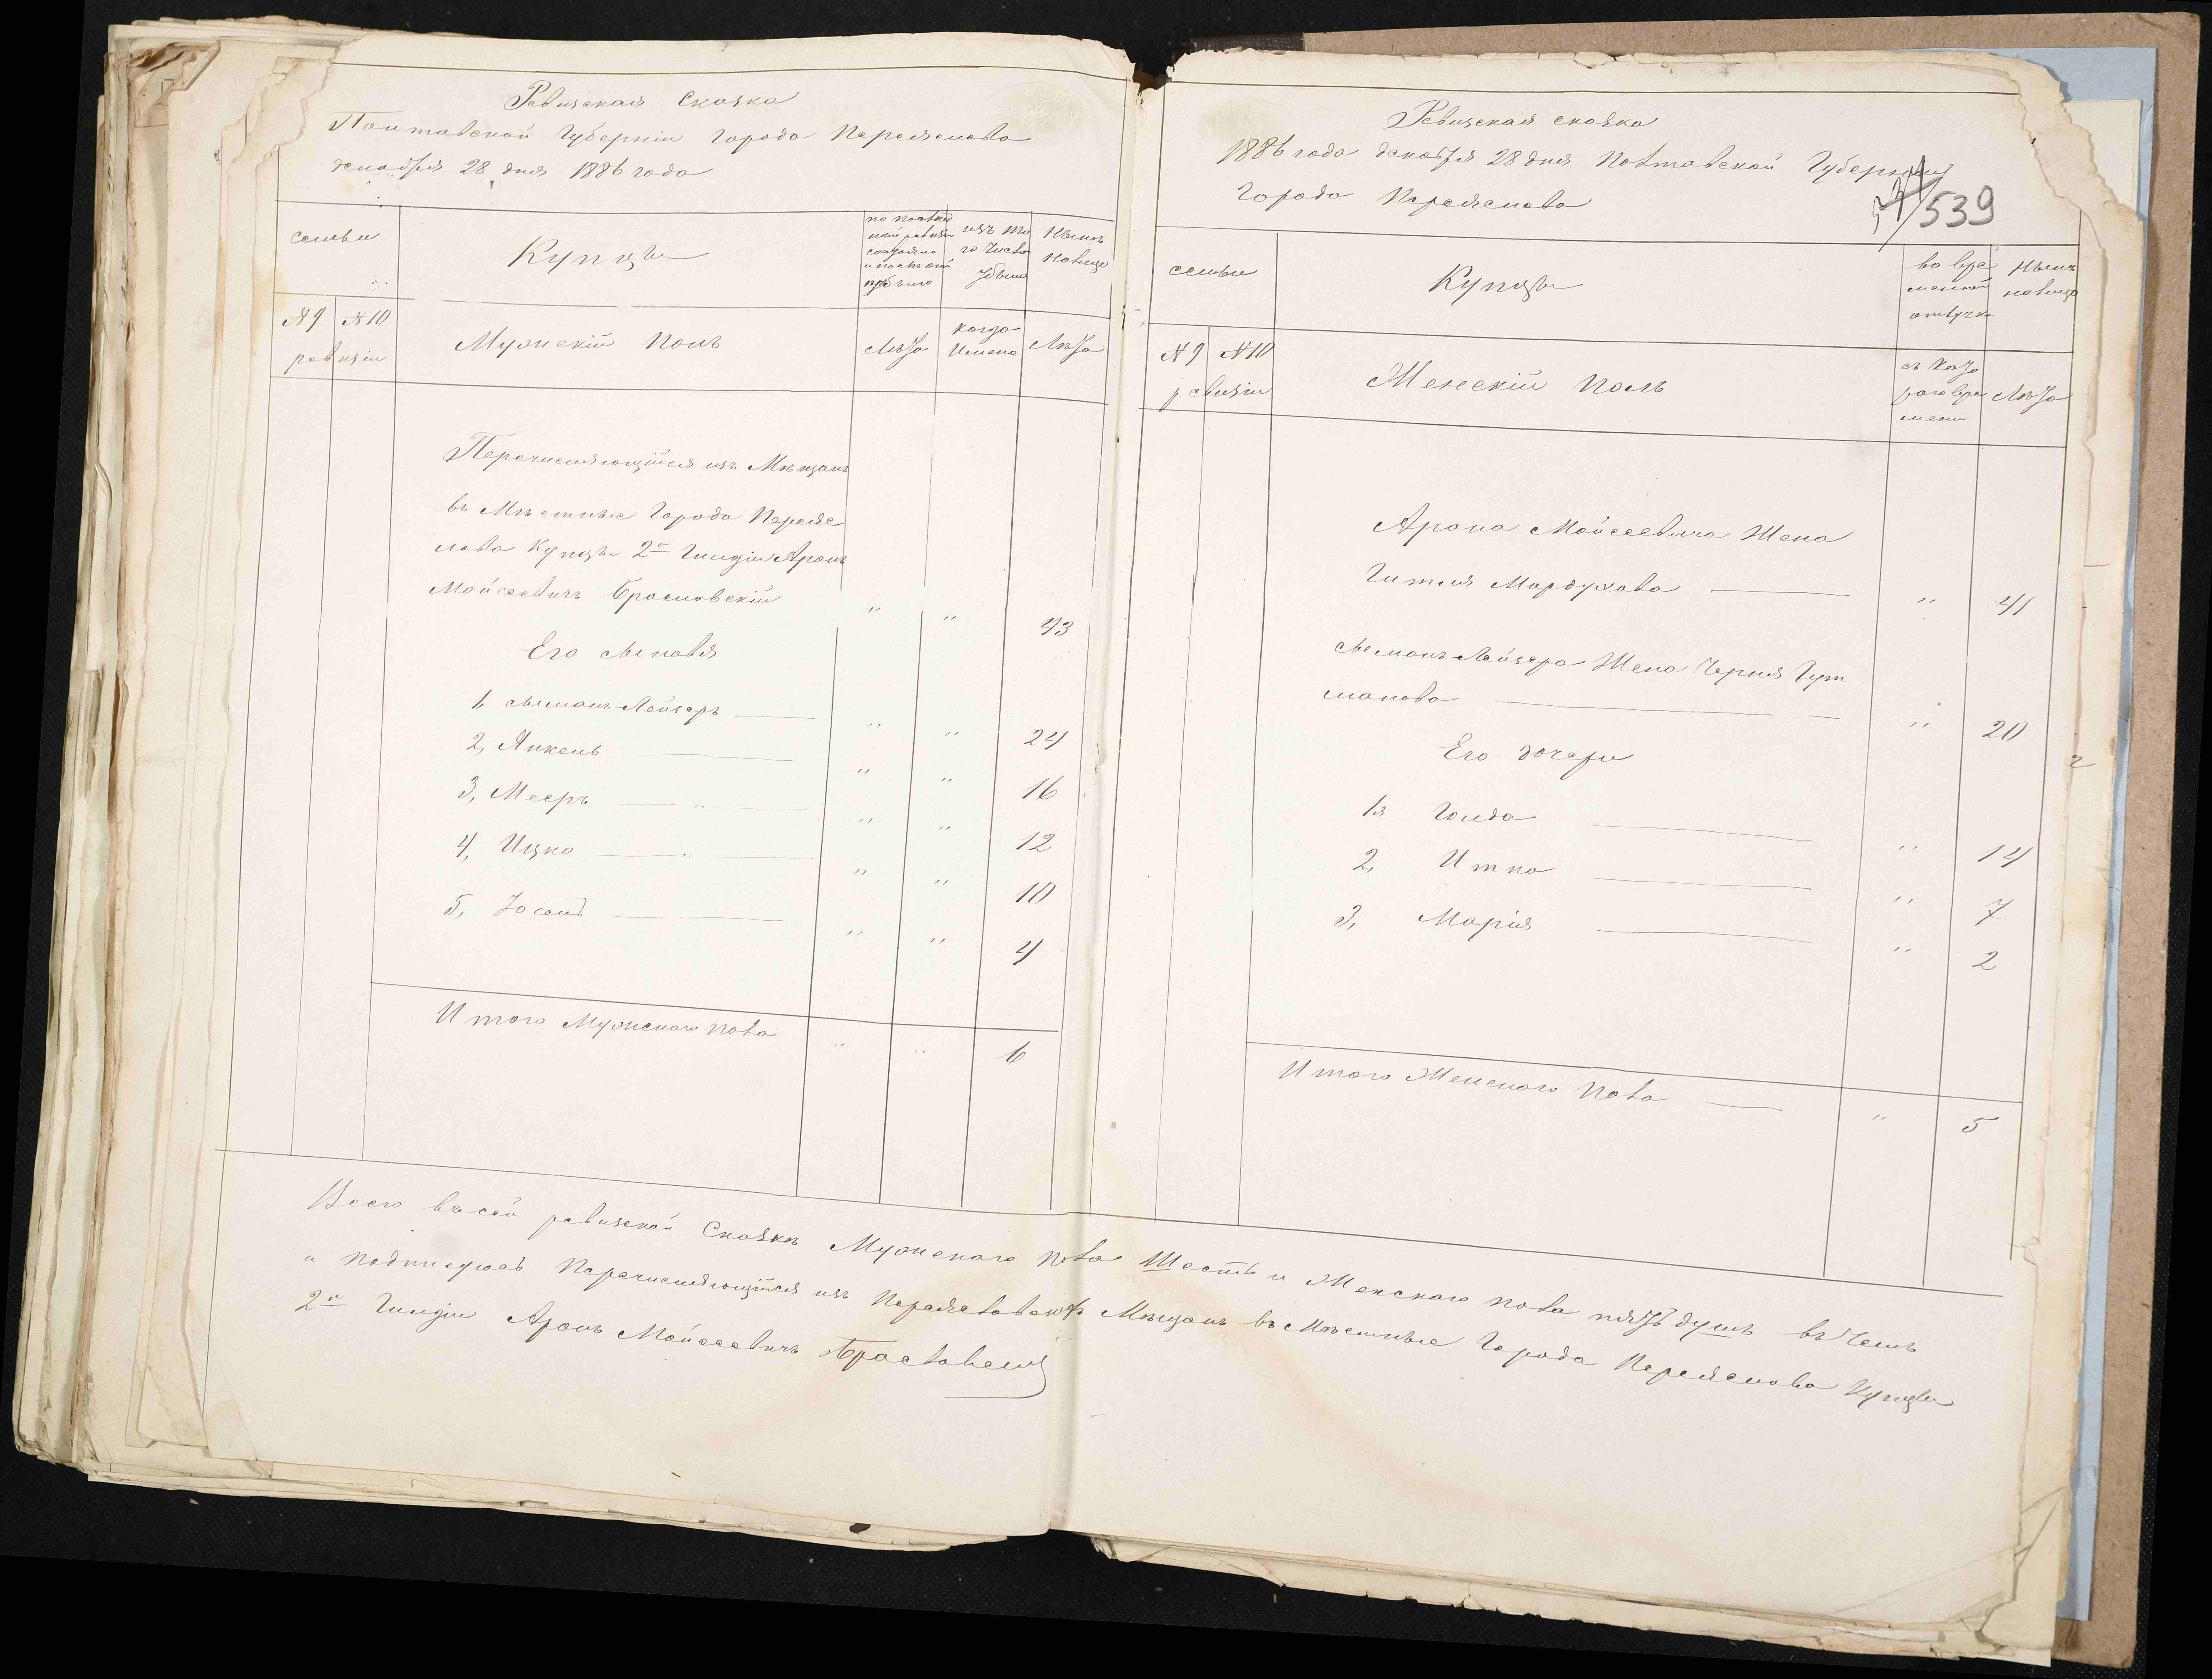 Ревизская Сказка
Полтавской Губерніи Города Переяслова
декабря 28 дня 1886 года
семьи
Купцы
по послед
ней ревизіи
состояло
и послѣ оной
прибыло
изъ то
го числа
убыло
Нынѣ
на лицо
№ 9 № 10
ревизіи
Мужскій Полъ
Лѣта
когда
Имено
Лѣта
Перечисляющійся изъ Мѣщанъ
въ Мѣстные Города Перея
слова Купцы 2й Гильдіи Аронъ
Мойсеевичъ Брасловскій " " 43
Его сыновья
1, Шлиома-Лейзеръ " " 24
2, Янкель " " 16
3, Мееръ " " " 12
4, Ицко " " " 10
5, Іосель " " 4
Итого Мужскаго пола " " 6
539
Ревизская сказка
1886 года декабря 28 дня Полтавской Губерніи
Города Переяслова
семьи
Купцы
во вре
менной
отлучке
Нынѣ
на лицо
№ 9 № 10
ревизіи
Женскій Полъ
съ кото
раго вре
мени
Лѣта
Арона Мойсеевича Жена
Гитля Мордухова " 41
Лейзера Жена Черня Гут
манова " 20
Его дочери
1я Голда " 14
2, Итка " 7
3, Марія " 2
Итого Женскаго Пола " 5
Всего въ сей ревизской Сказкѣ Мужскаго пола Шесть и Женскаго пола пять душъ въ чемъ
и подписуюсь Перечисляющійся изъ Переяславскихъ Мѣщанъ въ Мѣстные Города Переяслова Купцы
2й Гильдіи Аронъ Мойсеевичъ Браславскій